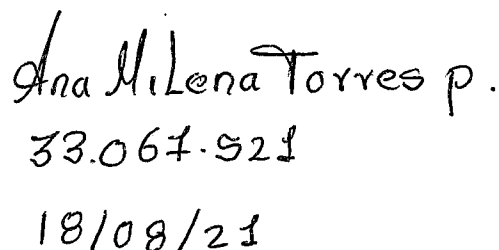 Ana Milena Torres p.
33.067.521
18/08/21